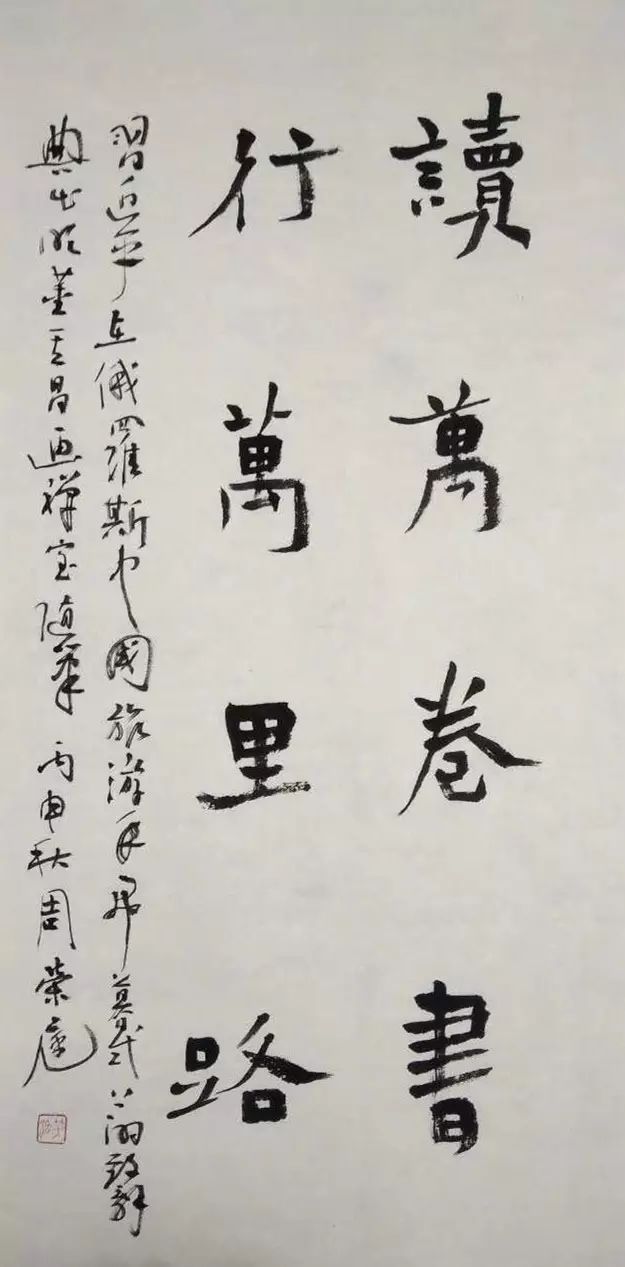 讀萬卷書
行萬里路
習近平在俄羅斯中國旅游年開幕式上的致辭
典出明董其昌畫禪室隨筆 丙申秋周榮庭